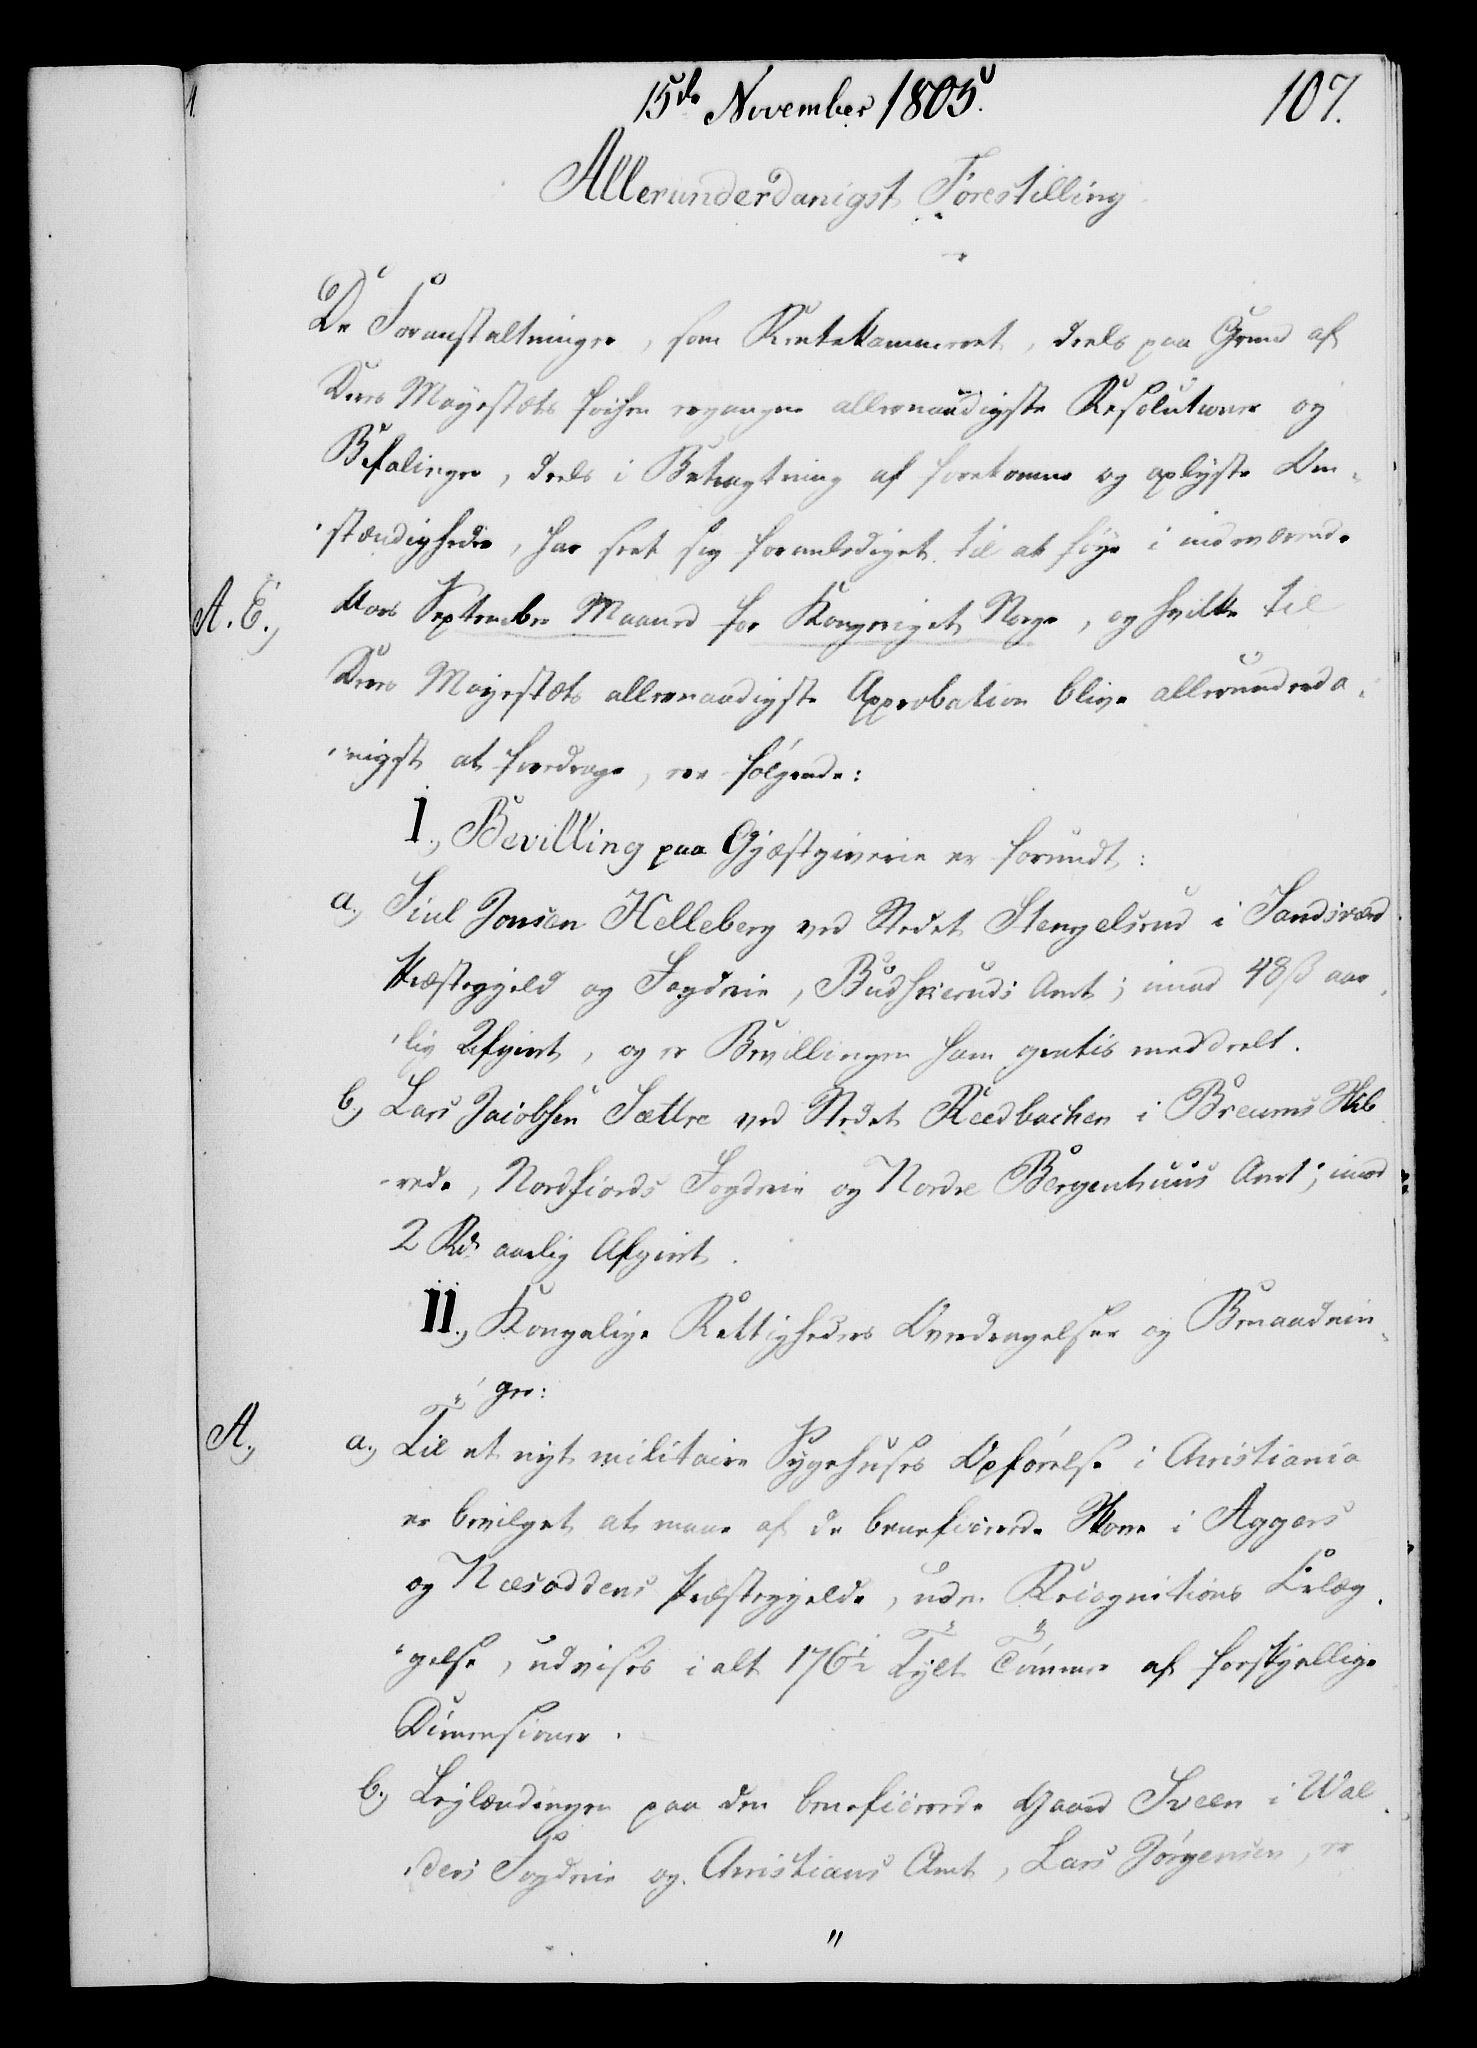 15de November 1805.
107.
Allerunderdanigst Forestilling
De Foranstaltninger, som Rentekammeret, deels paa Grund af
Deres Mayestæts forhen ergangne allernaadigste Resolutioner og
Befalinger, deels i Betragtning af forekomne og oplyste Om-
stændigheder, har seet sig foranlediget til at føye i indeværende
A. E.,
Aars September Maaned for Kongeriget Norge, og hvilke til
Deres Mayestæts allernaadigste Approbation blive allerunderda-
nigst at foredrage, ere følgende:
I., Bevilling paa Gjæstgiverie er forundt:
a., Siul Jonsen Helleberg ved Stedet Stengelsrud i Sandsværd
Præstegjeld og Fogderie, Budskieruds Amt; imod 48 ß aar-
lig Afgivt, og er Bevillingen ham gratis meddeelt.
b., Lars Jacobsen Sættre ved Stedet Reedbachen i Breums Skib-
rede, Nordfiords Fogderie og Nordre Bergenhuus Amt; imod
2 Rd aarlig Afgivt.
II., Kongelige Rettigheders Overdragelser og Benaadnin-
ger:
A.,
a., Til et nyt militaire Sygehuses Opførelse i Christiania
er bevilget at maae af de beneficerede Skove i Aggers
og Næsoddens Præstegjelde, uden Recognitions Erlæg-
gelse, udvises i alt 176½ Tylt Tømmer af forskjellige
Dimensioner.
b., Leylændingen paa den beneficerede Gaard Sveen i Wal-
ders Fogderie og Christians Amt, Lars Jørgensen, er
"